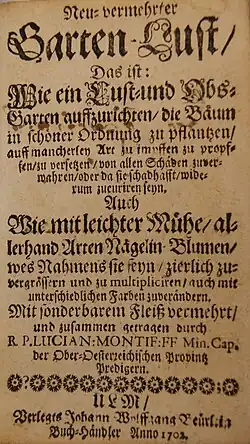 Neu-vermehrter
Garten-Lust/
Das ist:
Wie ein Lust-und Obs-
Garten auffzurichten/ die Bäum
in schöner Ordnung zu pflantzen/
auff mancherley Art zu impffen zu propf-
fen/zu versetzen/ von allen Schäden zuver-
wahren/oder da sie schadhafft/ wide-
rum zucuriren seyn.
Auch
Wie mit leichter Mühe/ al-
lerhand Arten Nägelin-Blumen/
wes Nahmens sie seyn/ zierlich zu-
vergrössern und zu multipliciren/ auch mit
unterschiedlichen Farben zuverändern.
Mit sonderbarem Fleiß vermehrt/
und zusammen getragen durch
R P. LUCIAN: MONTIF: FF Min. Cap.
der Ober-Oesterreichischen Provintz
Predigern.
ULM/
Verlegts Johann Wolffgang
Buch-Händler Anno 1702.